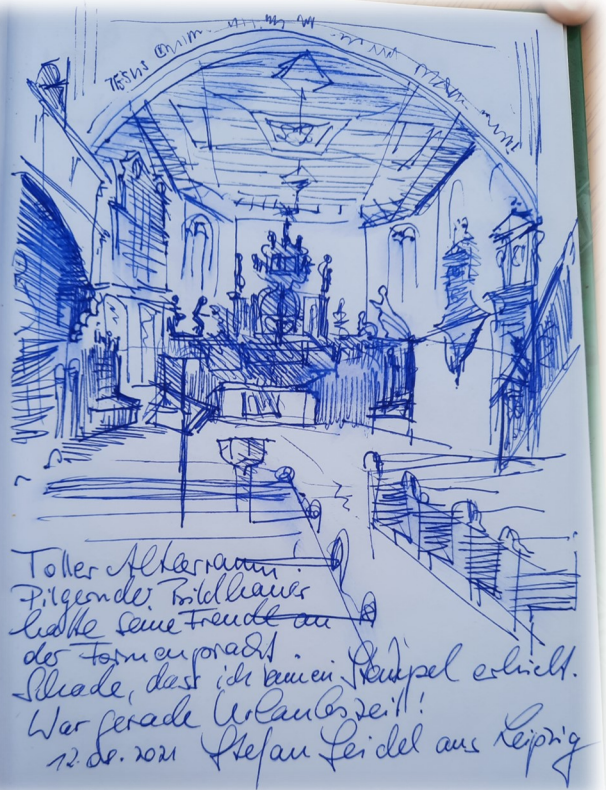 JESUS
Toller Altarraum.
Pilgernder Bildhauer
hatte seine Freude an
der Formenpracht.
Schade, dass ich keinen Stempel erhielt.
War gerade Urlaubszeit!
12.08.2021 Stefan Seidel aus Leipzig